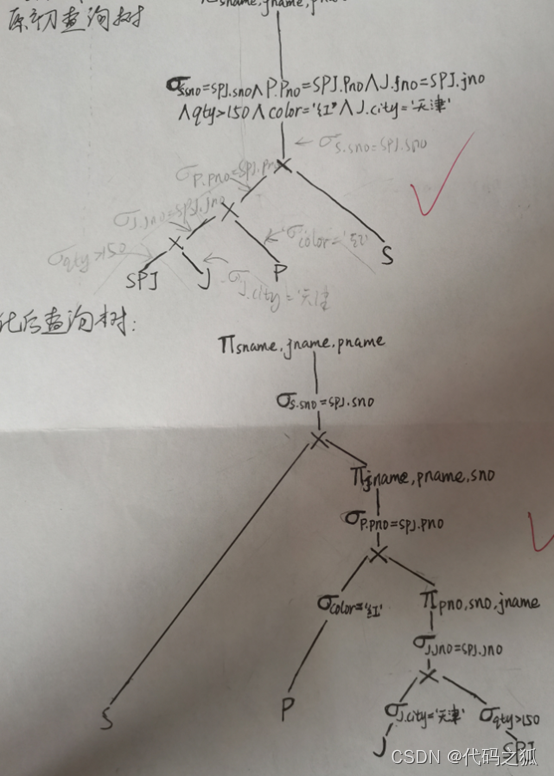 原初查询树
sname,jname,
σs.sno=SPJ.sno∧P.Pno=SPJ.Pno∧J.jno=SPJ.jno
∧qty>150∧color='红'∧J.city='天津'
σs.sno=SPJ.sno
×
σP.pno=SPJ.pno
×
σJ.jno=SPJ.jno
σcolor='红'
×
σqty>150
S
P
SPJ
J
σJ.city='天津'
化后查询树:
πsname,jname,pname
σs.sno=SPJ.sno
×
πjname,pname,sno
σP.pno=SPJ.pno
×
σcolor='红'
πpno,sno,jname
σJ.jno=SPJ.jno
×
σJ.city='天津'
σqty>150
S
P
J
SPJ
CSDN @代码之狐